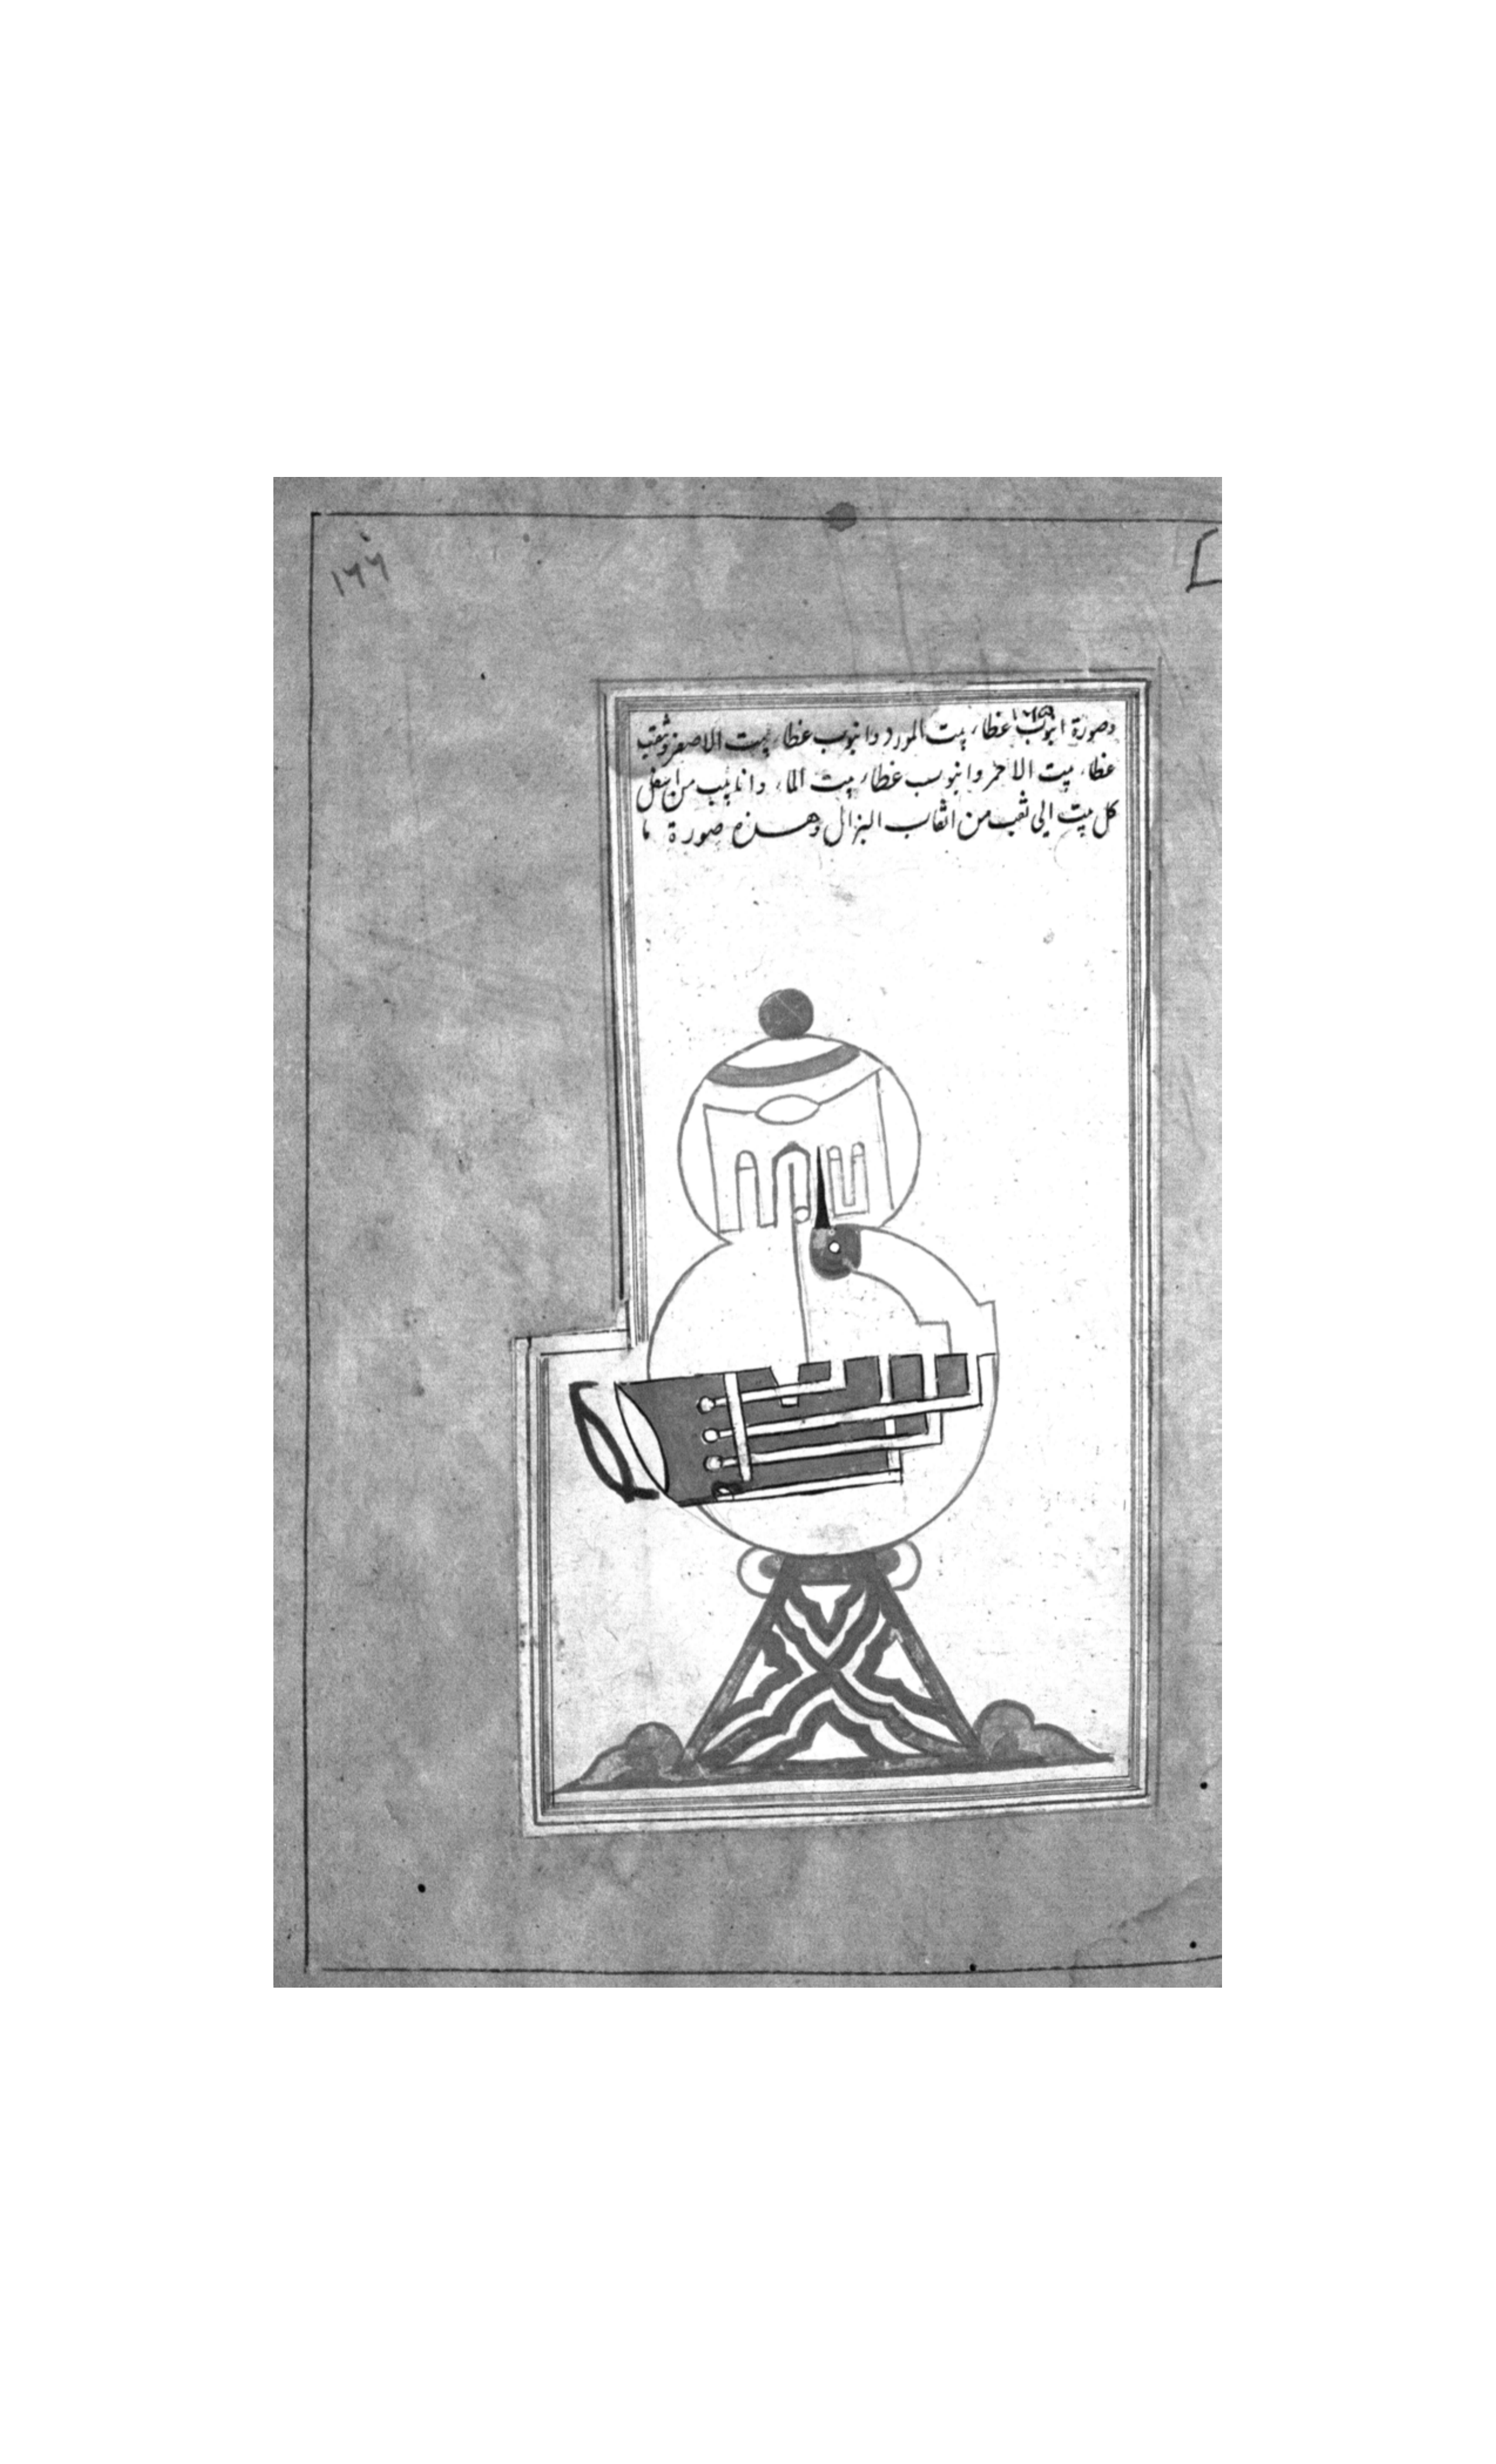 ١٦٦
وصورة انبوب غطاء بيت المورد وانبوب غطاء بيت الاصفر وثقب
غطاء بيت الاحمر وانبوب غطاء بيت الماء وانابيب من اسفل
كل بيت الى ثقب من اثقاب البزال وهذه صورة ما